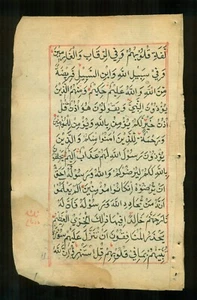 لفة قلوبهم وفي الرقاب والغارمين
وفي سبيل الله وابن السبيل فريضة
من الله والله عليم حكيم ومنهم الذين
يؤذون النبي ويقولون هو اذن قل
اذن خير لكم يؤمن بالله ويؤمن للمؤمنين
ورحمة للذين امنوا منكم والذين
يؤذون رسول الله لهم عذاب اليم
يحلفون بالله لكم ليرضوكم والله ورسوله احق
ان يرضوه ان كانوا مؤمنين الم يعلموا
انه من يحادد الله ورسوله فان له نار
جهنم خالدا فيها ذلك الخزي العظيم
يحذر المنافقون ان تنزل عليهم سورة
تنبئهم بما في قلوبهم قل استهزؤا ان الله